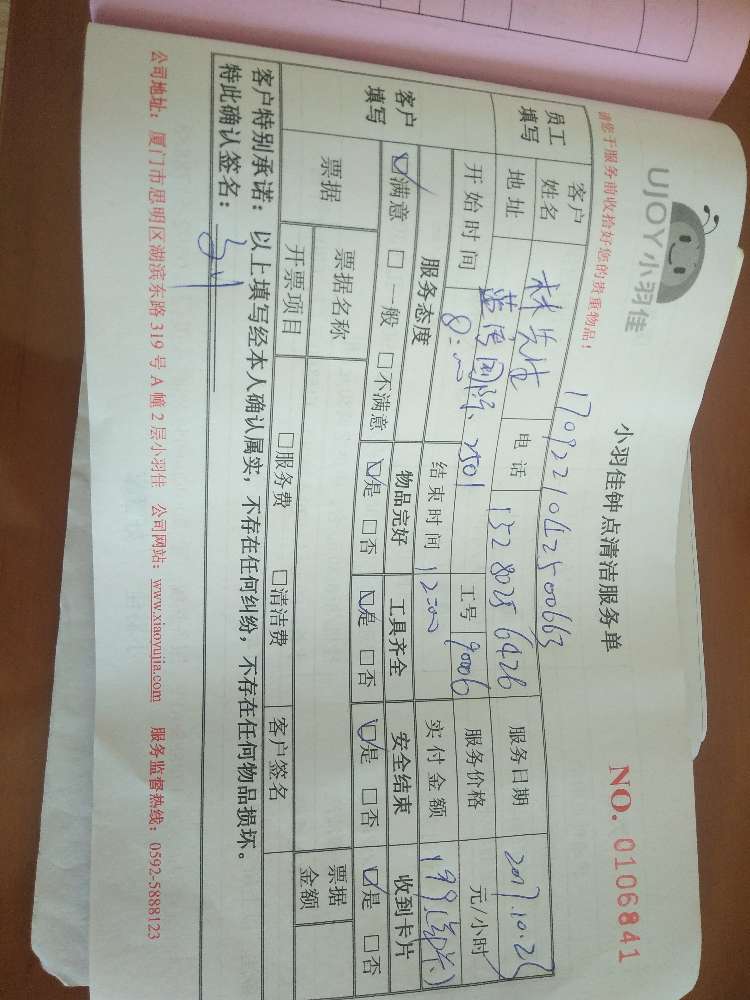 UJOY小羽佳
小羽佳钟点清洁服务单
NO. 0106841
请您于服务前收拾好您的贵重物品！
员工填写
客户姓名 林先生 电话 15280256426 服务日期 2017.10.26
地址 2501 工号 90006 服务价格 元/小时
开始时间 8:00 结束时间 12:00 实付金额 199
客户填写
服务态度 物品完好 工具齐全 安全结束 收到卡片
☑满意 □一般 □不满意 ☑是 □否 ☑是 □否 ☑是 □否 ☑是 □否
票据 票据名称 票据金额
开票项目 □服务费 □清洁费 客户签名
客户特别承诺：以上填写经本人确认属实，不存在任何纠纷，不存在任何物品损坏。
特此确认签名：
公司地址：厦门市思明区湖滨东路319号A幢2层小羽佳 公司网站：www.xiaoyujia.com 服务监督热线：0592-5888123